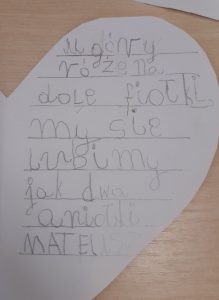 u góry
róże na
dole fiołki
my się
lubimy
jak dwa
aniołki
MATEUSZ